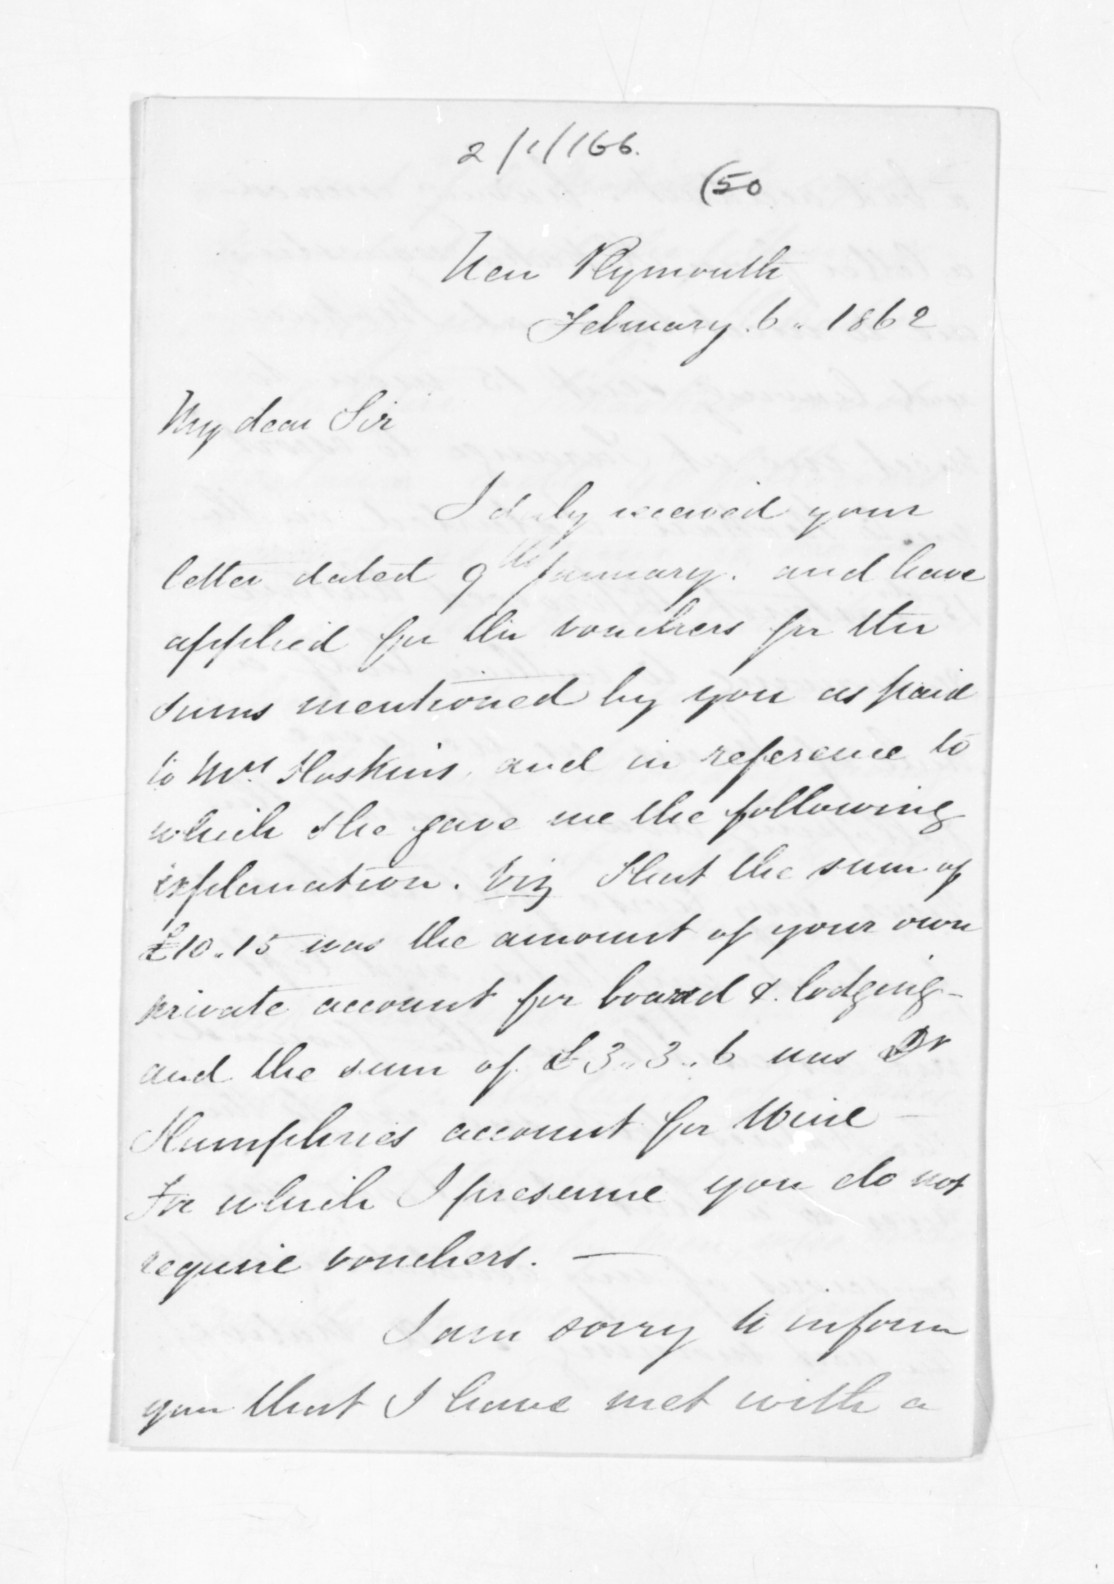 2/1/166.
(50
New Plymouth
February 6.. 1862
My dear Sir
I duly received your
letter dated 9th January. and have
applied for the vouchers for the
sums mentioned by you as paid
to Mrs Hoskins, and in reference to
which she gave me the following
explanation. Viz That the sum of
£10.15 was the amount of your own
private account for board & lodging -
and the sum of £3..3..6 was Dr
Humphries account for Wine -
For which I presume you do not
require vouchers. —
I am sorry to inform
you that I have met with a